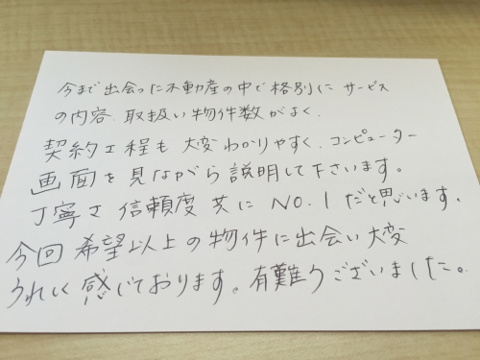 今まで出会った不動産の中で格別に サービス
の内容、取扱い物件数がよく、
契約工程も 大変わかりやすく、コンピューター
画面を見ながら説明して下さいます。
丁寧さ 信頼度 共に NO.1だと思います。
今回 希望以上の物件に出会い大変
うれしく感じております。有難うございました。